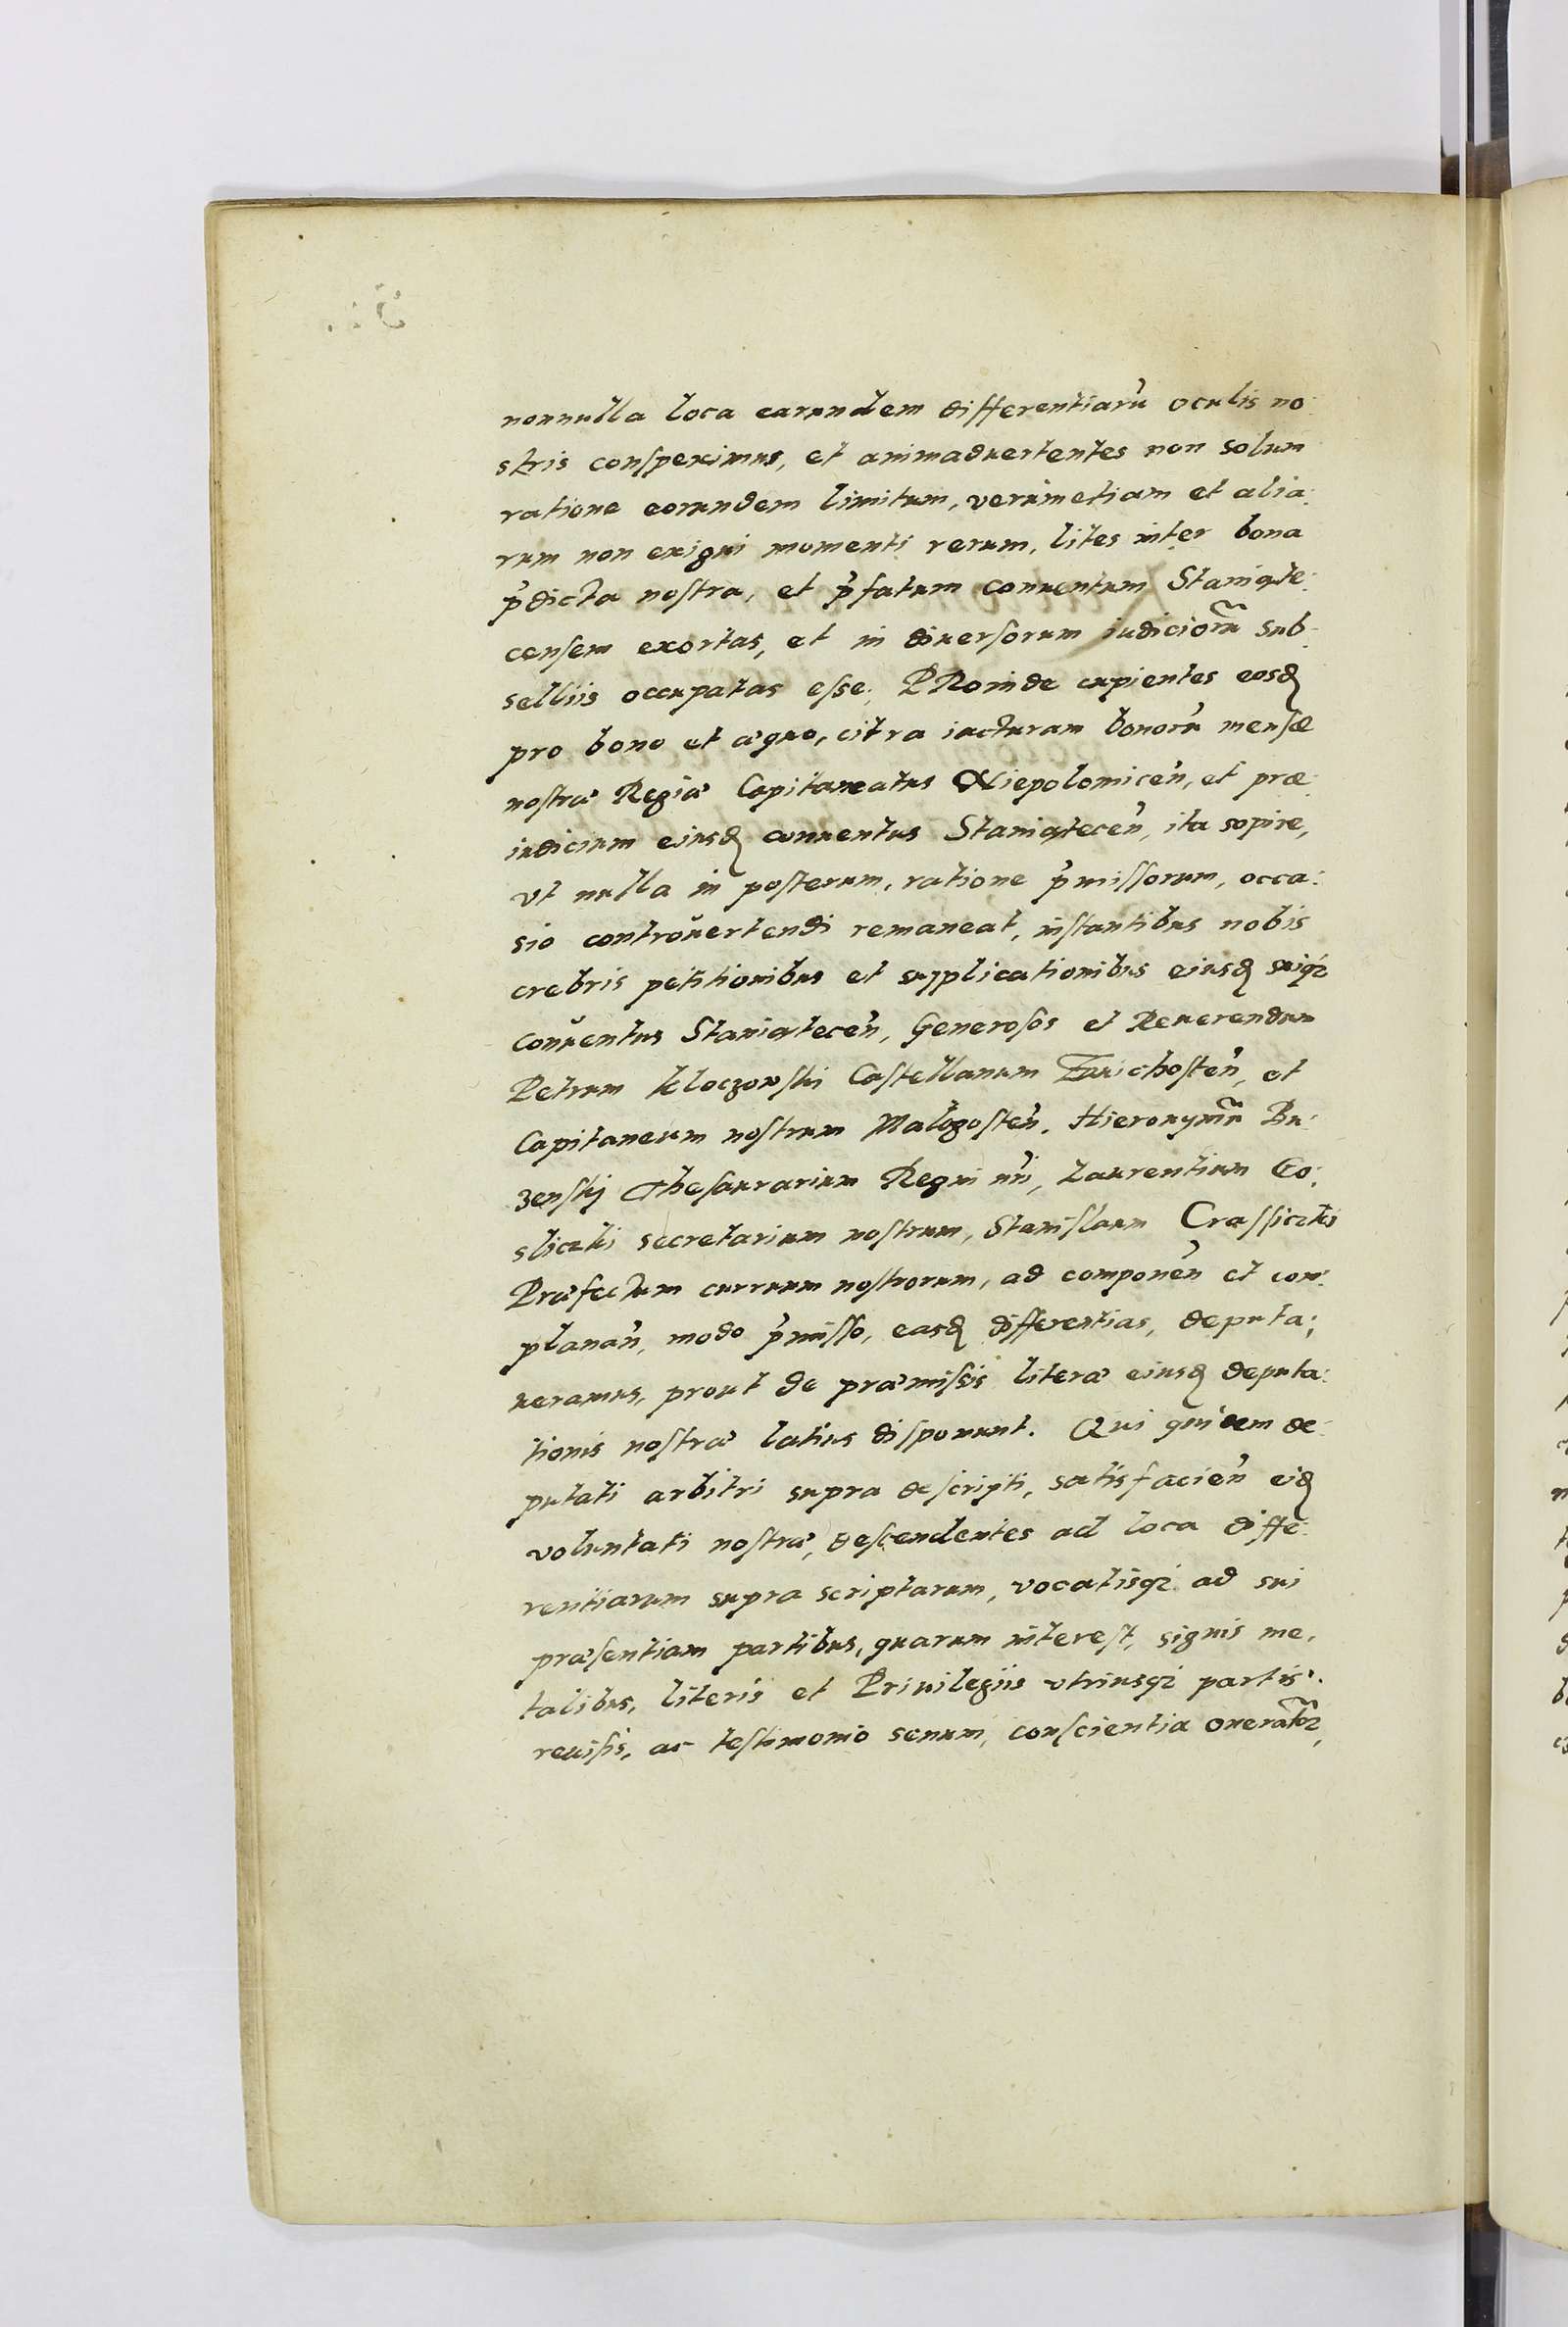 nonnulla loca earundem differentiarũ oculis no:
stris conspeximus, et animaduertentes non solum
ratione eorundem limitum, verùmetiam et alia:
rum non exigui momenti rerum, lites inter bona
p̃dicta nostra, et p̃fatum conuentum Staniąte:
censem exortas, et in diuersorum iudiciorũ sub:
selliis occupatas esse. PRoinde cupientes eosdē
pro bono et æquo, citra iacturam bonorũ mensæ
nostræ Regiæ Capitaneatus Niepolomicen̄, et præ:
iudicium eiusdē conuentus Staniątecen̄, ita sopire,
vt nulla in posterum, ratione p̃missorum, occa:
sio controuertendi remaneat, instantibus nobis
crebris petitionibus et supplicationibus eiusdē suiqz
conuentus Staniątecen̄, Generosos et Reuerendum
Petrum kloczowski Castellanum Zawichosten̄, et
Capitaneum nostrum Malogosten̄. Hieronymũ Bu:
zenskj Thesaurarium Regni nr̄i, Laurentium Go:
sliczki secretarium nostrum, Stanislaum Crassiczki
Præfectum curruum nostrorum, ad componen̄ et com:
planan̄, modo p̃misso, easdē differentias, deputa:
ueramus, prout de præmissis literæ eiusdē deputa:
tionis nostræ latius disponunt. Qui quidem de:
putati arbitri supra descripti, satisfacien̄ eidē
voluntati nostræ, descendentes ad loca diffe:
rentiarum supra scriptarum, vocatisqz ad sui
præsentiam partibus, quarum interest, signis me:
talibus, literis et Priuilegiis vtriusqz partis
reuisis, ac testimonio senum, conscientia oneratoꝝ,